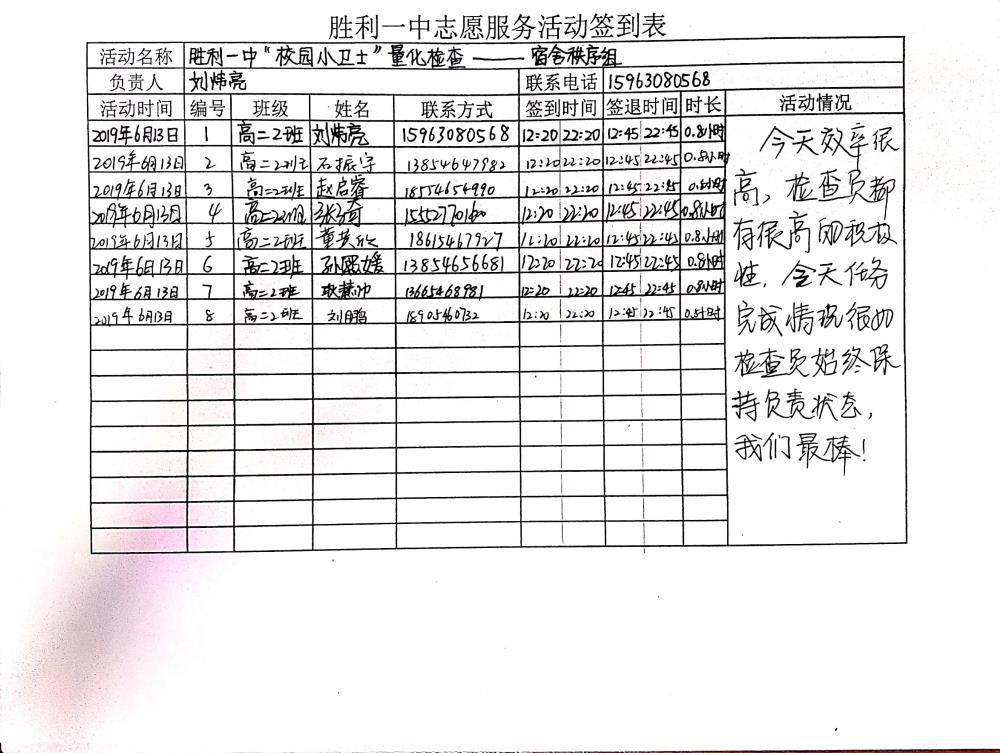 胜利一中志愿服务活动签到表
活动名称 胜利一中“校园小卫士”量化检查——宿舍秩序组
负责人 刘炜亮 联系电话 15963080568
活动时间 编号 班级 姓名 联系方式 签到时间 签退时间 时长 活动情况
2019年6月13日 1 高二2班 刘炜亮 15963080568 12:20 22:20 12:45 22:45 0.8小时
2019年6月13日 2 高二2班 石振宇 13854647982 12:20 22:20 12:45 22:45 0.8小时
2019年6月13日 3 高二2班 赵启睿 18554654990 12:20 22:20 12:45 22:45 0.8小时
2019年6月13日 4 高二2班 张琦 12:20 22:20 12:45 22:45 0.8小时
2019年6月13日 5 高二2班 18615467927 12:20 22:20 12:45 22:45 0.8小时
2019年6月13日 6 高二2班 13854656681 12:20 22:20 12:45 22:45 0.8小时
2019年6月13日 7 高二2班 13665468981 12:20 22:20 12:45 22:45 0.8小时
2019年6月13日 8 高二2班 18905460732 12:20 22:20 12:45 22:45 0.8小时
今天效率很
高，检查员都
有很高的积极
性，今天任务
完成情况很好
检查员始终保
持负责状态，
我们最棒！